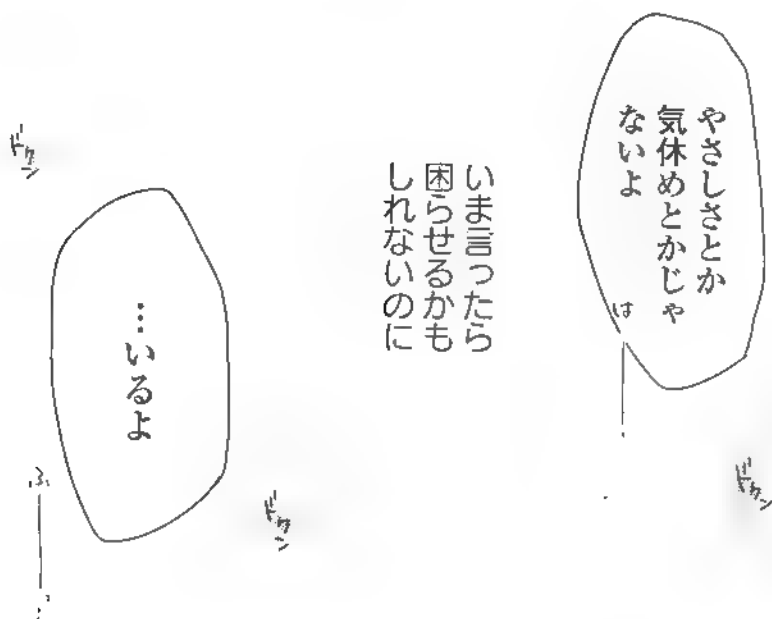 やさしさとか
気休めとかじゃ
ないよ
は
ドクン
いま言ったら
困らせるかも
しれないのに
ドクン
…いるよ
ドクン
ふ